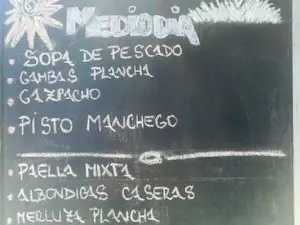 MEDIODIA
SOPA DE PESCADO
GAMBAS PLANCHA
GAZPACHO
PISTO MANCHEGO
PAELLA MIXTA
ALBONDIGAS CASERAS
MERLUZA PLANCHA